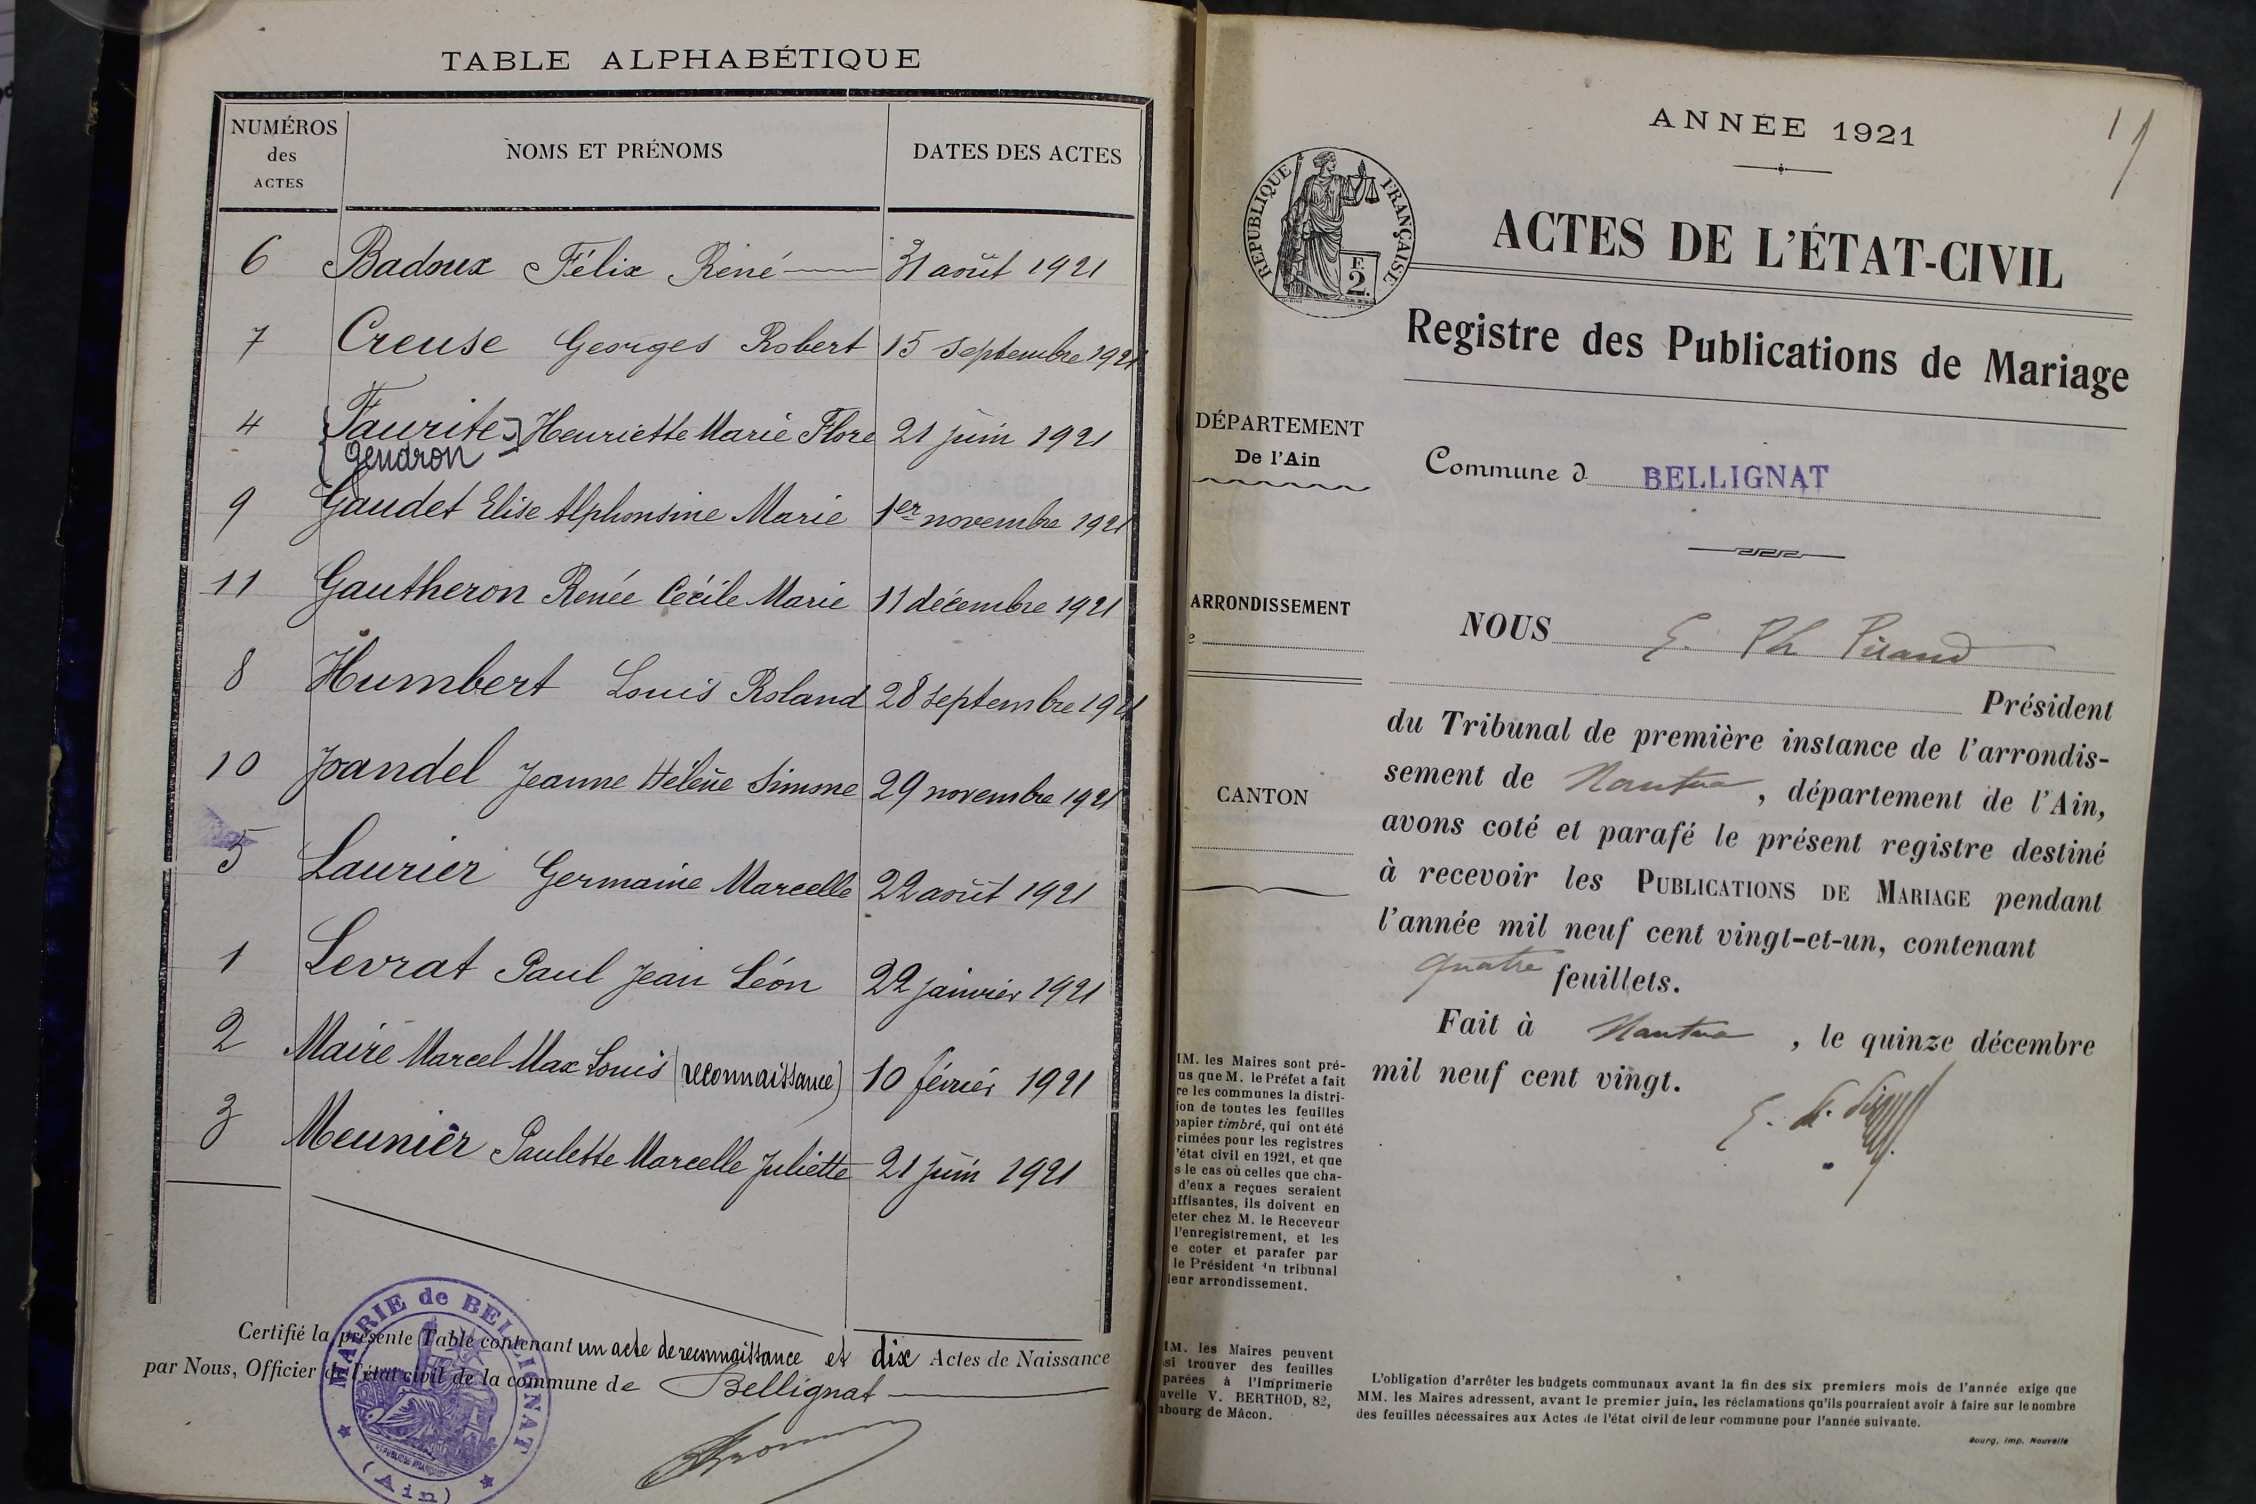 TABLE ALPHABÉTIQUE
NUMÉROS des ACTES
NOMS ET PRÉNOMS
DATES DES ACTES
6 Badoux Félix René 31 août 1921
7 Creuse Georges Robert 15 septembre 1921
4 Faurite Henriette Marie Flore 21 juin 1921
Gendron
9 Gaudet Elise Alphonsine Marie 1er novembre 1921
11 Gautheron Renée Cécile Marie 11 décembre 1921
8 Humbert Louis Roland 28 septembre 1921
10 Joandel Jeanne Hélène Simone 29 novembre 1921
5 Laurier Germaine Marcelle 22 août 1921
1 Levrat Paul Jean Léon 22 janvier 1921
2 Maire Marcel Max Louis (reconnaissance) 10 février 1921
3 Meunier Paulette Marcelle Juliette 21 juin 1921
Certifié la présente Table contenant un acte de reconnaissance et dix Actes de Naissance
par Nous, Officier de l'état civil de la commune de Bellignat
MAIRIE de BELLIGNAT
RÉPUBLIQUE FRANÇAISE
(Ain)
ANNÉE 1921
RÉPUBLIQUE FRANÇAISE
F.
2.
ACTES DE L'ÉTAT-CIVIL
Registre des Publications de Mariage
DÉPARTEMENT
De l'Ain
Commune d BELLIGNAT
ARRONDISSEMENT
e
CANTON
NOUS E. Ph Piraud
Président
du Tribunal de première instance de l'arrondis-
sement de Nantua, département de l'Ain,
avons coté et parafé le présent registre destiné
à recevoir les PUBLICATIONS DE MARIAGE pendant
l'année mil neuf cent vingt-et-un, contenant
quatre feuillets.
Fait à Nantua, le quinze décembre
mil neuf cent vingt.
MM. les Maires sont pré-
us que M. le Préfet a fait
re les communes la distri-
ion de toutes les feuilles
papier timbré, qui ont été
rimées pour les registres
'état civil en 1921, et que
s le cas où celles que cha-
d'eux a reçues seraient
uffisantes, ils doivent en
eter chez M. le Receveur
l'enregistrement, et les
e coter et parafer par
le Président du tribunal
leur arrondissement.
MM. les Maires peuvent
si trouver des feuilles
parées à l'Imprimerie
uvelle V. BERTHOD, 82,
ubourg de Mâcon.
L'obligation d'arrêter les budgets communaux avant la fin des six premiers mois de l'année exige que
MM. les Maires adressent, avant le premier juin, les réclamations qu'ils pourraient avoir à faire sur le nombre
des feuilles nécessaires aux Actes de l'état civil de leur commune pour l'année suivante.
Bourg, Imp. Nouvelle